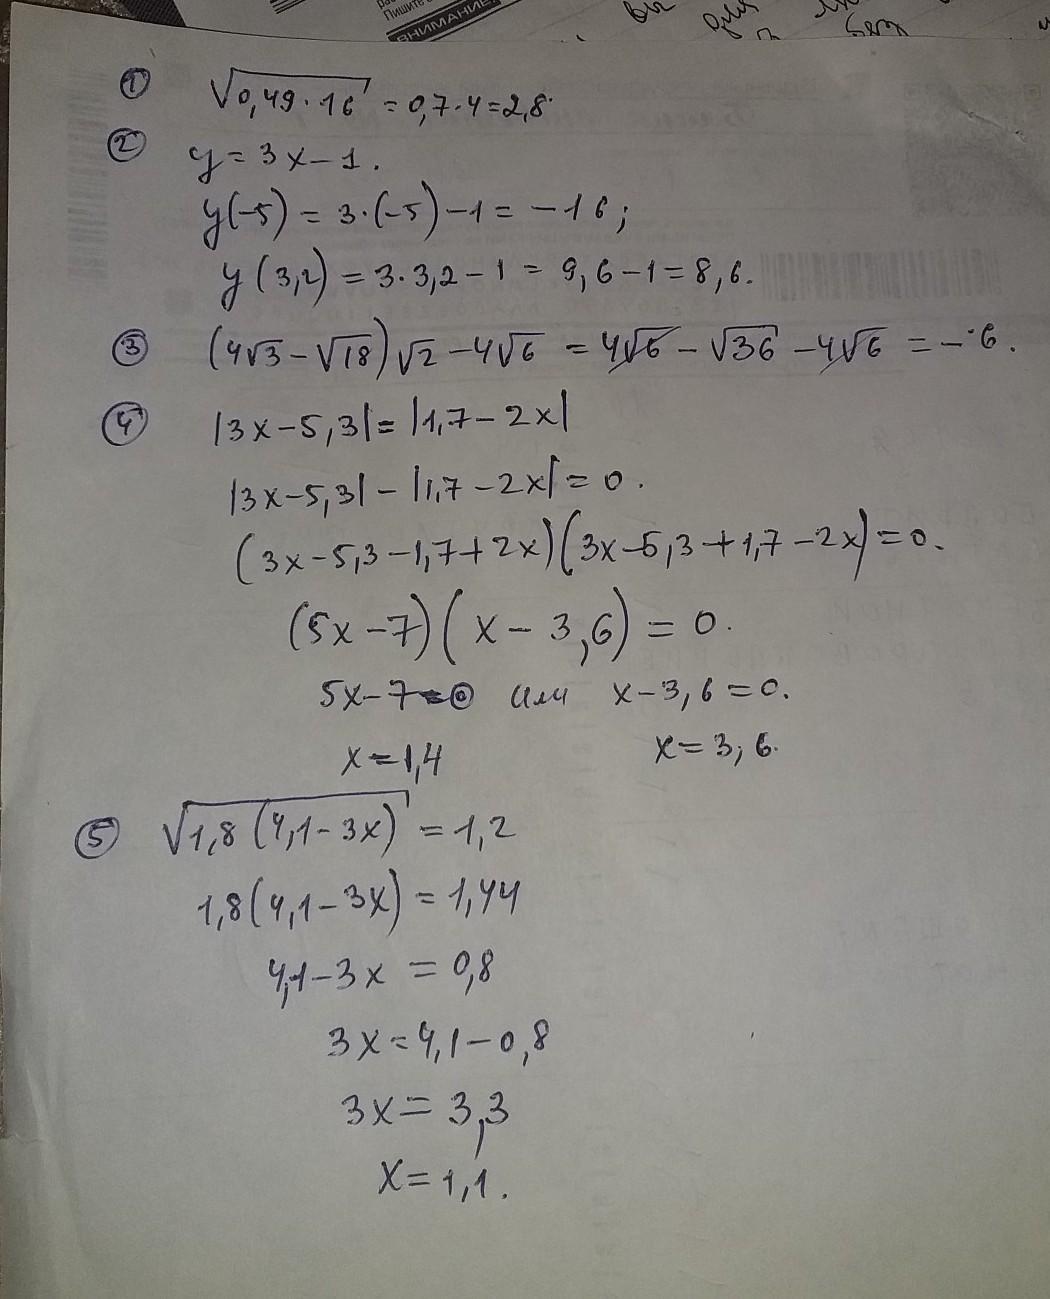 Пишите
ВНИМАНИЕ
① √(0,49·16) = 0,7·4=2,8
② y = 3x – 1.
y(-5) = 3·(-5) – 1 = –16;
y(3,2) = 3·3,2 – 1 = 9,6 – 1 = 8,6.
③ (4√3 – √18)√2 – 4√6 = 4√6 – √36 – 4√6 = –6.
④ |3x – 5,3| = |1,7 – 2x|
|3x – 5,3| – |1,7 – 2x| = 0.
(3x – 5,3 – 1,7 + 2x)(3x – 5,3 + 1,7 – 2x) = 0.
(5x – 7)(x – 3,6) = 0.
5x – 7 = 0 или x – 3,6 = 0.
x = 1,4 x = 3,6.
⑤ √(1,8(4,1 – 3x)) = 1,2
1,8(4,1 – 3x) = 1,44
4,1 – 3x = 0,8
3x = 4,1 – 0,8
3x = 3,3
x = 1,1.